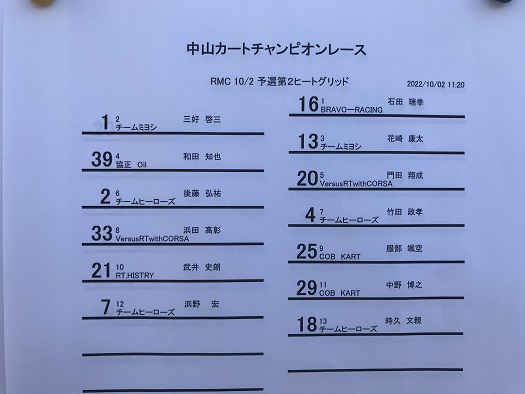 中山カートチャンピオンレース
RMC 10/2 予選第2ヒートグリッド
2022/10/02 11:20
16 1 石田 瑞季
BRAVO-RACING
1 2 三好 啓三
チームミヨシ
13 3 花崎 康太
チームミヨシ
39 4 和田 知也
協正 Oil
20 5 門田 翔成
VersusRTwithCORSA
2 6 後藤 弘祐
チームヒーローズ
4 7 竹田 政孝
チームヒーローズ
33 8 浜田 高彰
VersusRTwithCORSA
25 9 服部 颯空
COB KART
21 10 武井 史朗
RT.HISTRY
29 11 中野 博之
COB KART
7 12 浜野 宏
チームヒーローズ
18 13 時久 文親
チームヒーローズ